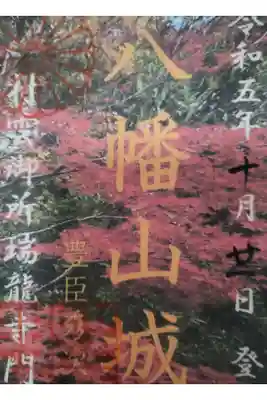 令和五年十月廿一日 登
八幡山城
豊臣秀
村雲御所瑞龍寺門